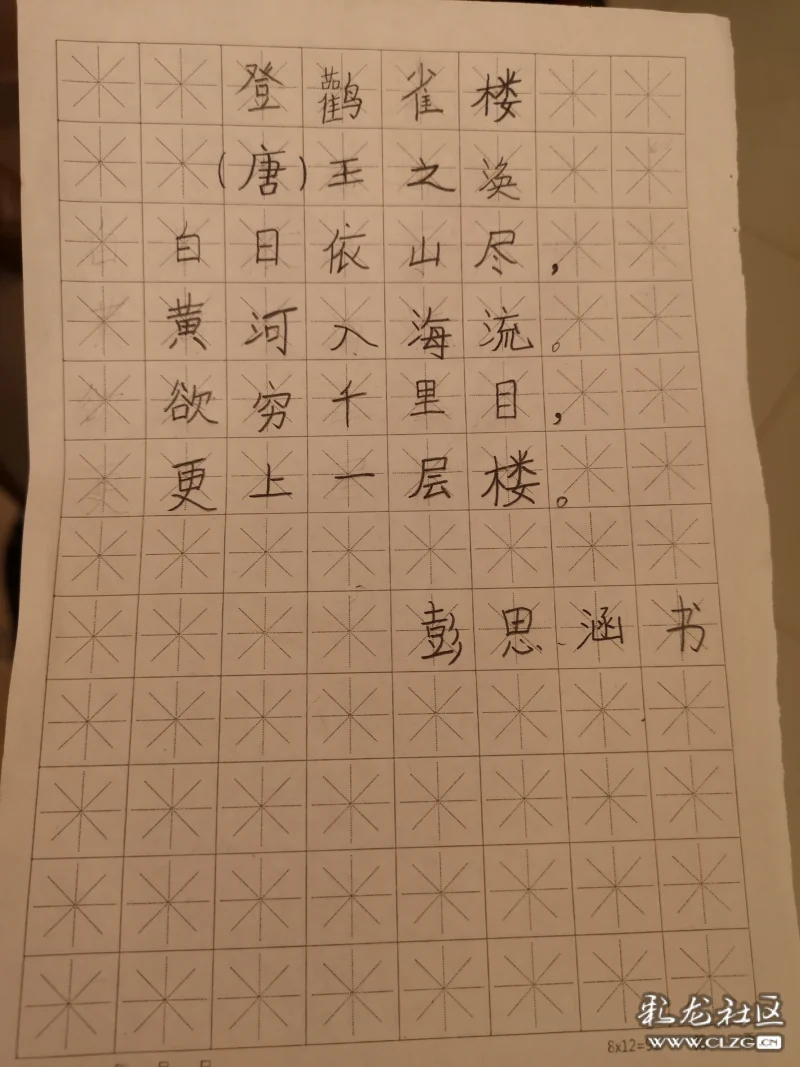 登鹳雀楼
(唐)王之涣
白日依山尽，
黄河入海流。
欲穷千里目，
更上一层楼。
彭思涵书
8x12=9
月 日
彩龙社区
WWW.CLZG.CN